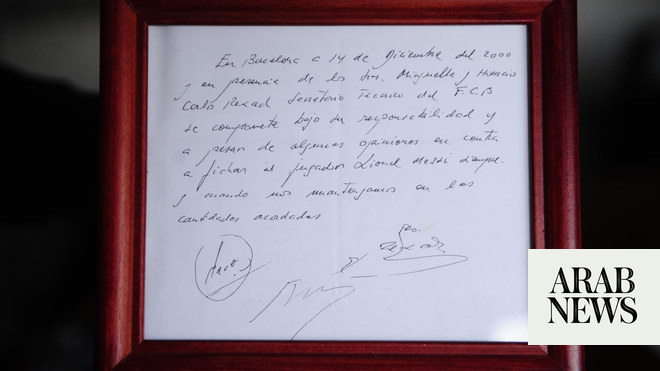 En Barcelona a 14 de Diciembre del 2000
y en presencia de los Sres. Minguella y Horacio
Carlos Rexach Secretario Técnico del F.C.B
se compromete bajo su responsabilidad y
a pesar de algunas opiniones en contra
a fichar al jugador Lionel Messi siempre
y cuando nos mantengamos en las
cantidades acordadas
ARAB
NEWS